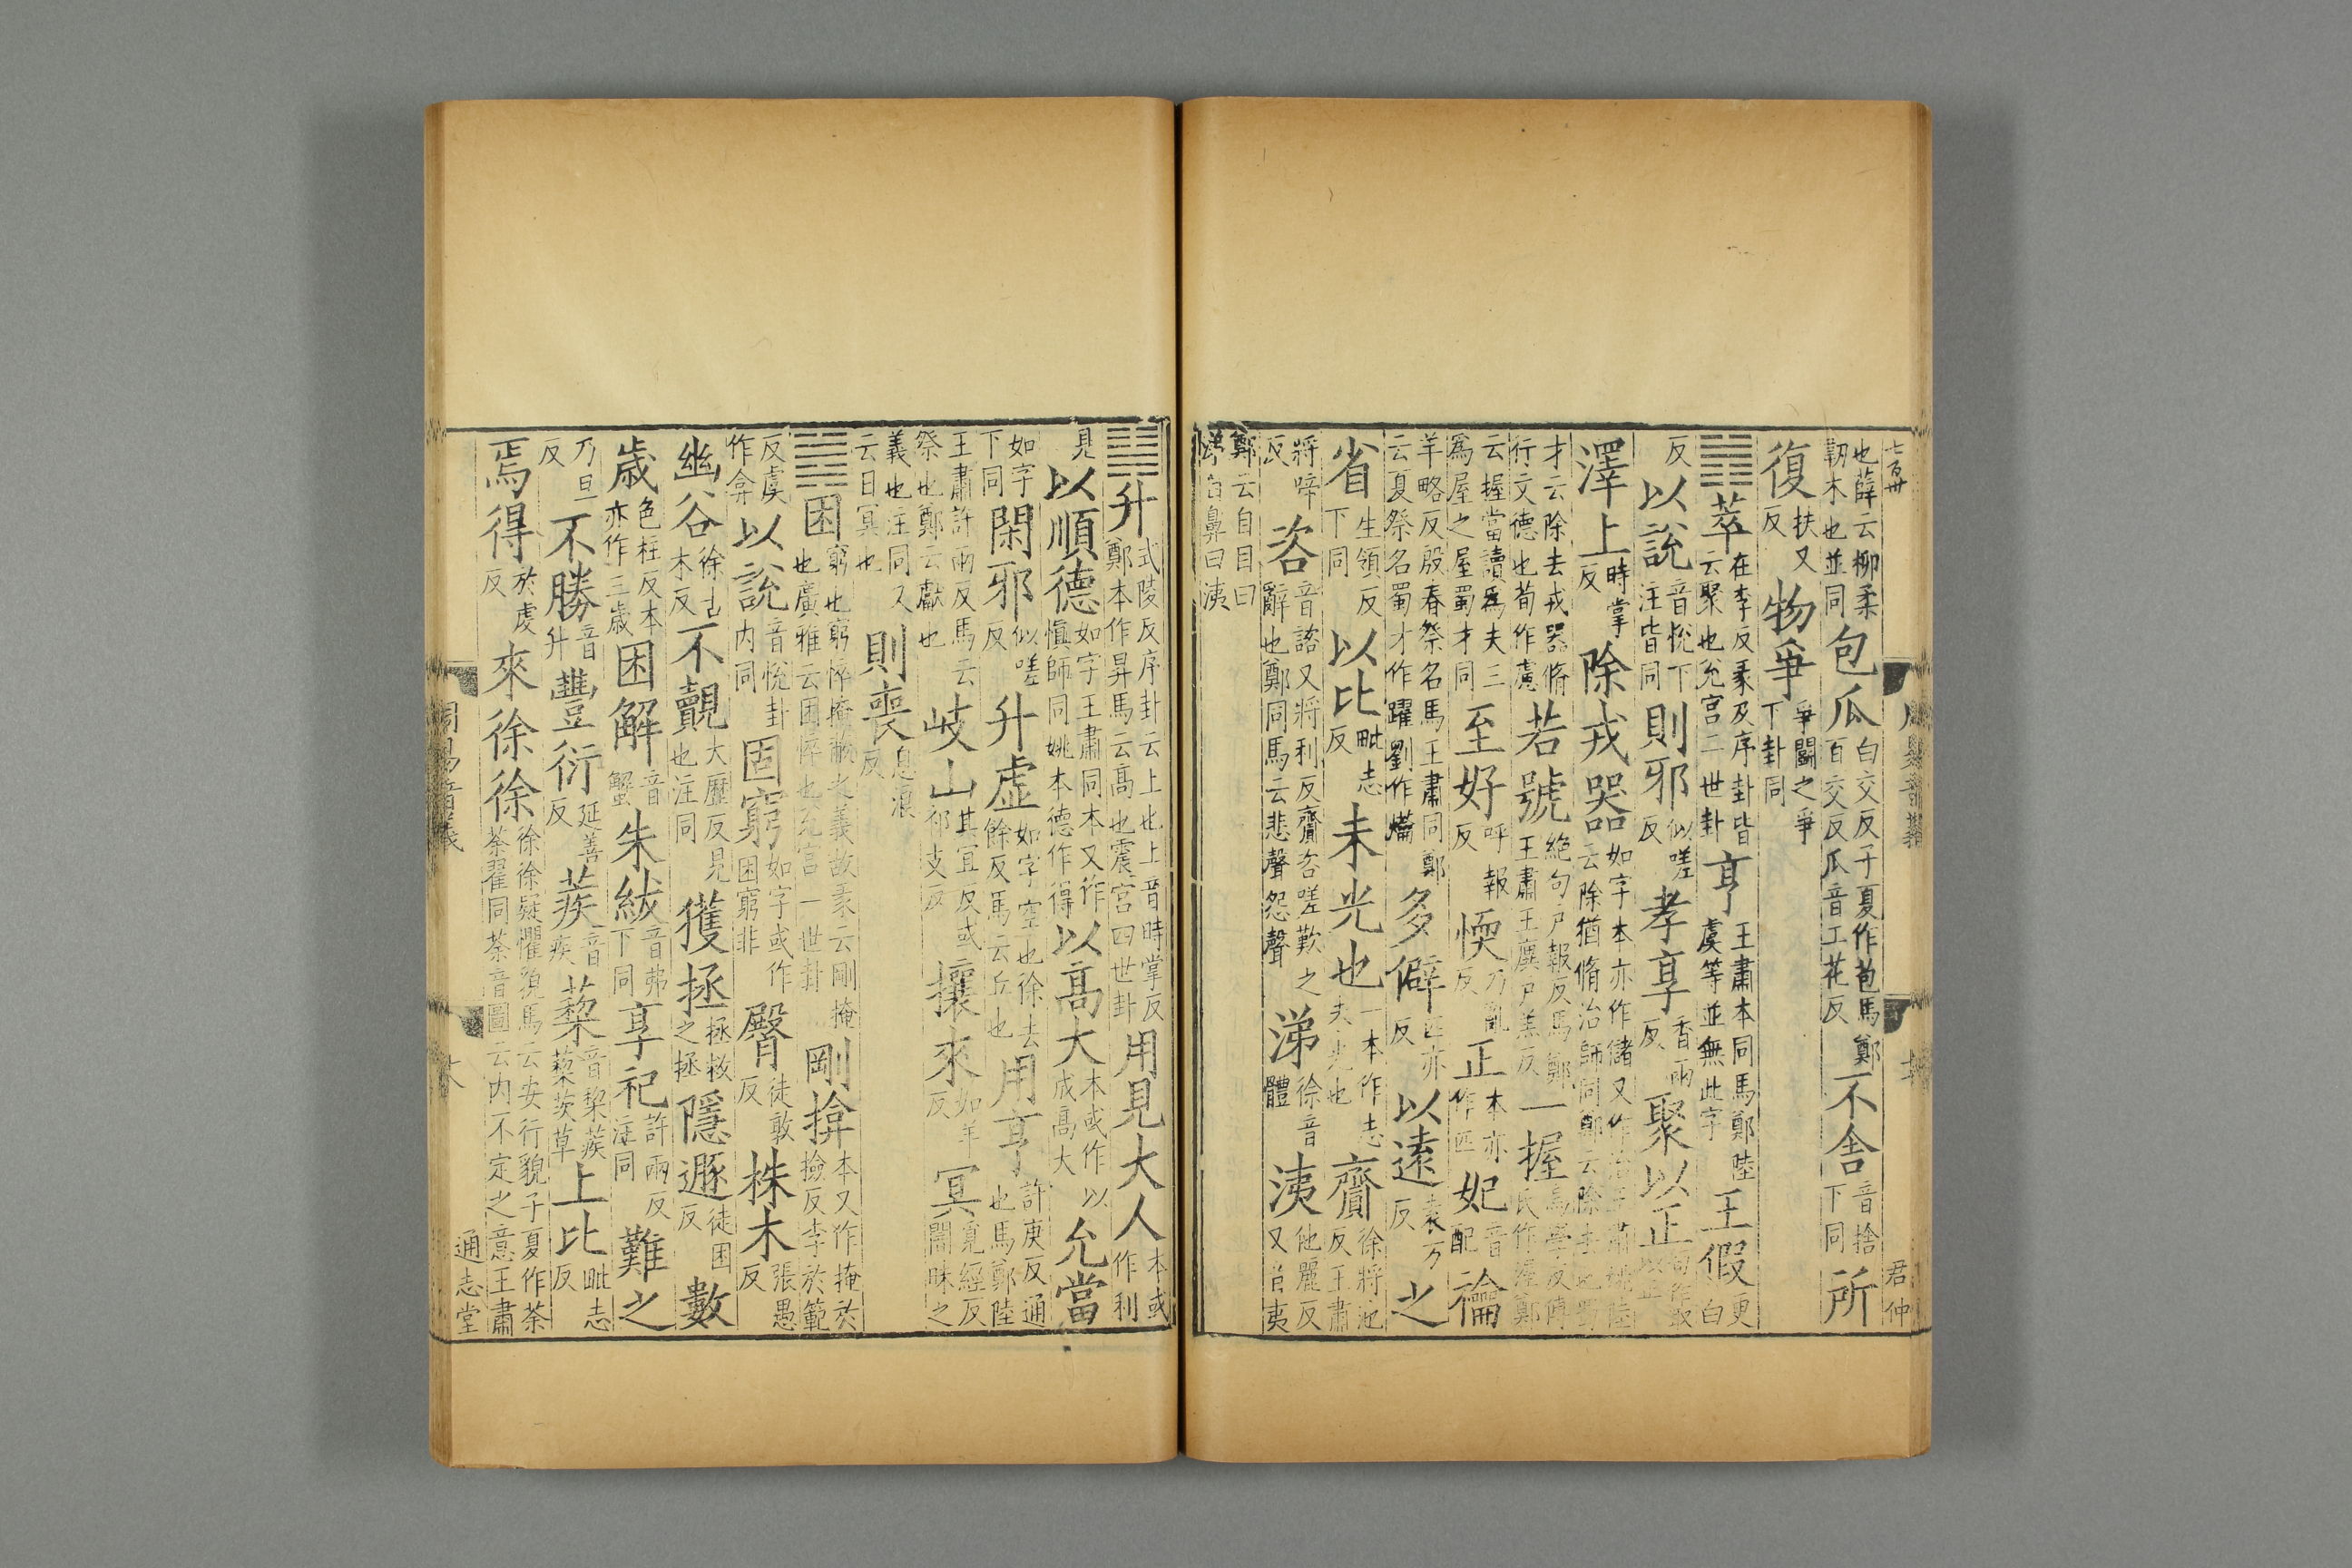 七百卅 周易音義 君仲
也薛云柳柔韌木也並同包瓜白交反子夏作苞馬鄭百交反瓜音工花反不舍音捨下同所
復扶又反物爭爭鬬之爭下卦同
䷬萃在季反彖及序卦皆云聚也兌宮二世卦亨王肅本同馬鄭陸虞等並無此字王假更白
反以說音悅下注皆同則邪似嗟反孝享香兩反聚以正荀作取以正
澤上時掌反除戎器如字本亦作儲又作治王肅姚陸云除猶脩治師同鄭云除去也蜀
才云除去戎器脩行文德也荀作慮若號絕句戶報反馬鄭王肅王廙戶羔反一握烏學反傅氏作渥鄭
云握當讀爲夫三爲屋之屋蜀才同至好呼報反愞乃亂反正本亦作匹妃音配禴
羊略反殷春祭名馬王肅同鄭云夏祭名蜀才作躍劉作爚多僻匹亦反以遠袁万反之
省生領反下同以比毗志反未光也一本作志未光也齎徐將池反王肅
將啼反咨音諮又將利反齎咨嗟歎之辭也鄭同馬云悲聲怨聲涕徐音體洟他麗反又音夷
鄭云自目曰涕自鼻曰洟
䷭升式陵反序卦云上也上音時掌反鄭本作昇馬云高也震宮四世卦用見大人本或作利
見以順德如字王肅同本又作愼師同姚本德作得以高大本或作以成高大允當
如字下同閑邪似嗟反升虛如字空也徐去餘反馬云丘也用亨許庚反通也馬鄭陸
王肅許兩反馬云祭也鄭云獻也岐山其宜反或祁支反攘來如羊反冥覓經反闇昧之
義也注同又云日冥也則喪息浪反
䷮困窮也窮悴掩蔽之義故彖云剛掩也廣雅云困悴也兌宮一世卦剛揜本又作掩於撿反李於範
反虞作弇以說音悅卦内同固窮如字或作困窮非臀徒敢反株木張愚反
幽谷徐古木反不覿大歷反見也注同獲拯拯救之拯隱遯徒困反數
歲色柱反本亦作三歲困解音蟹朱紱音弗下同享祀許兩反注同難之
乃旦反不勝音升豐衍延善反蒺音疾藜音棃蒺藜茨草上比毗志反
焉得於虔反來徐徐徐徐疑懼貌馬云安行貌子夏作荼荼翟同荼音圖云内不定之意王肅
周易音義 通志堂